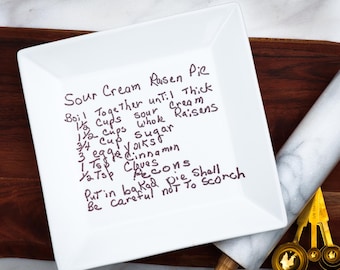 Sour Cream Raisen Pie
Boil Together until Thick
1½ Cups sour Cream
1½ Cups whole Raisens
¾ Cup sugar
3 egg yolks
1 Tsp Cinnamon
½ Tsp Cloves
Pecons
Put in baked pie shall
Be careful not To Scorch